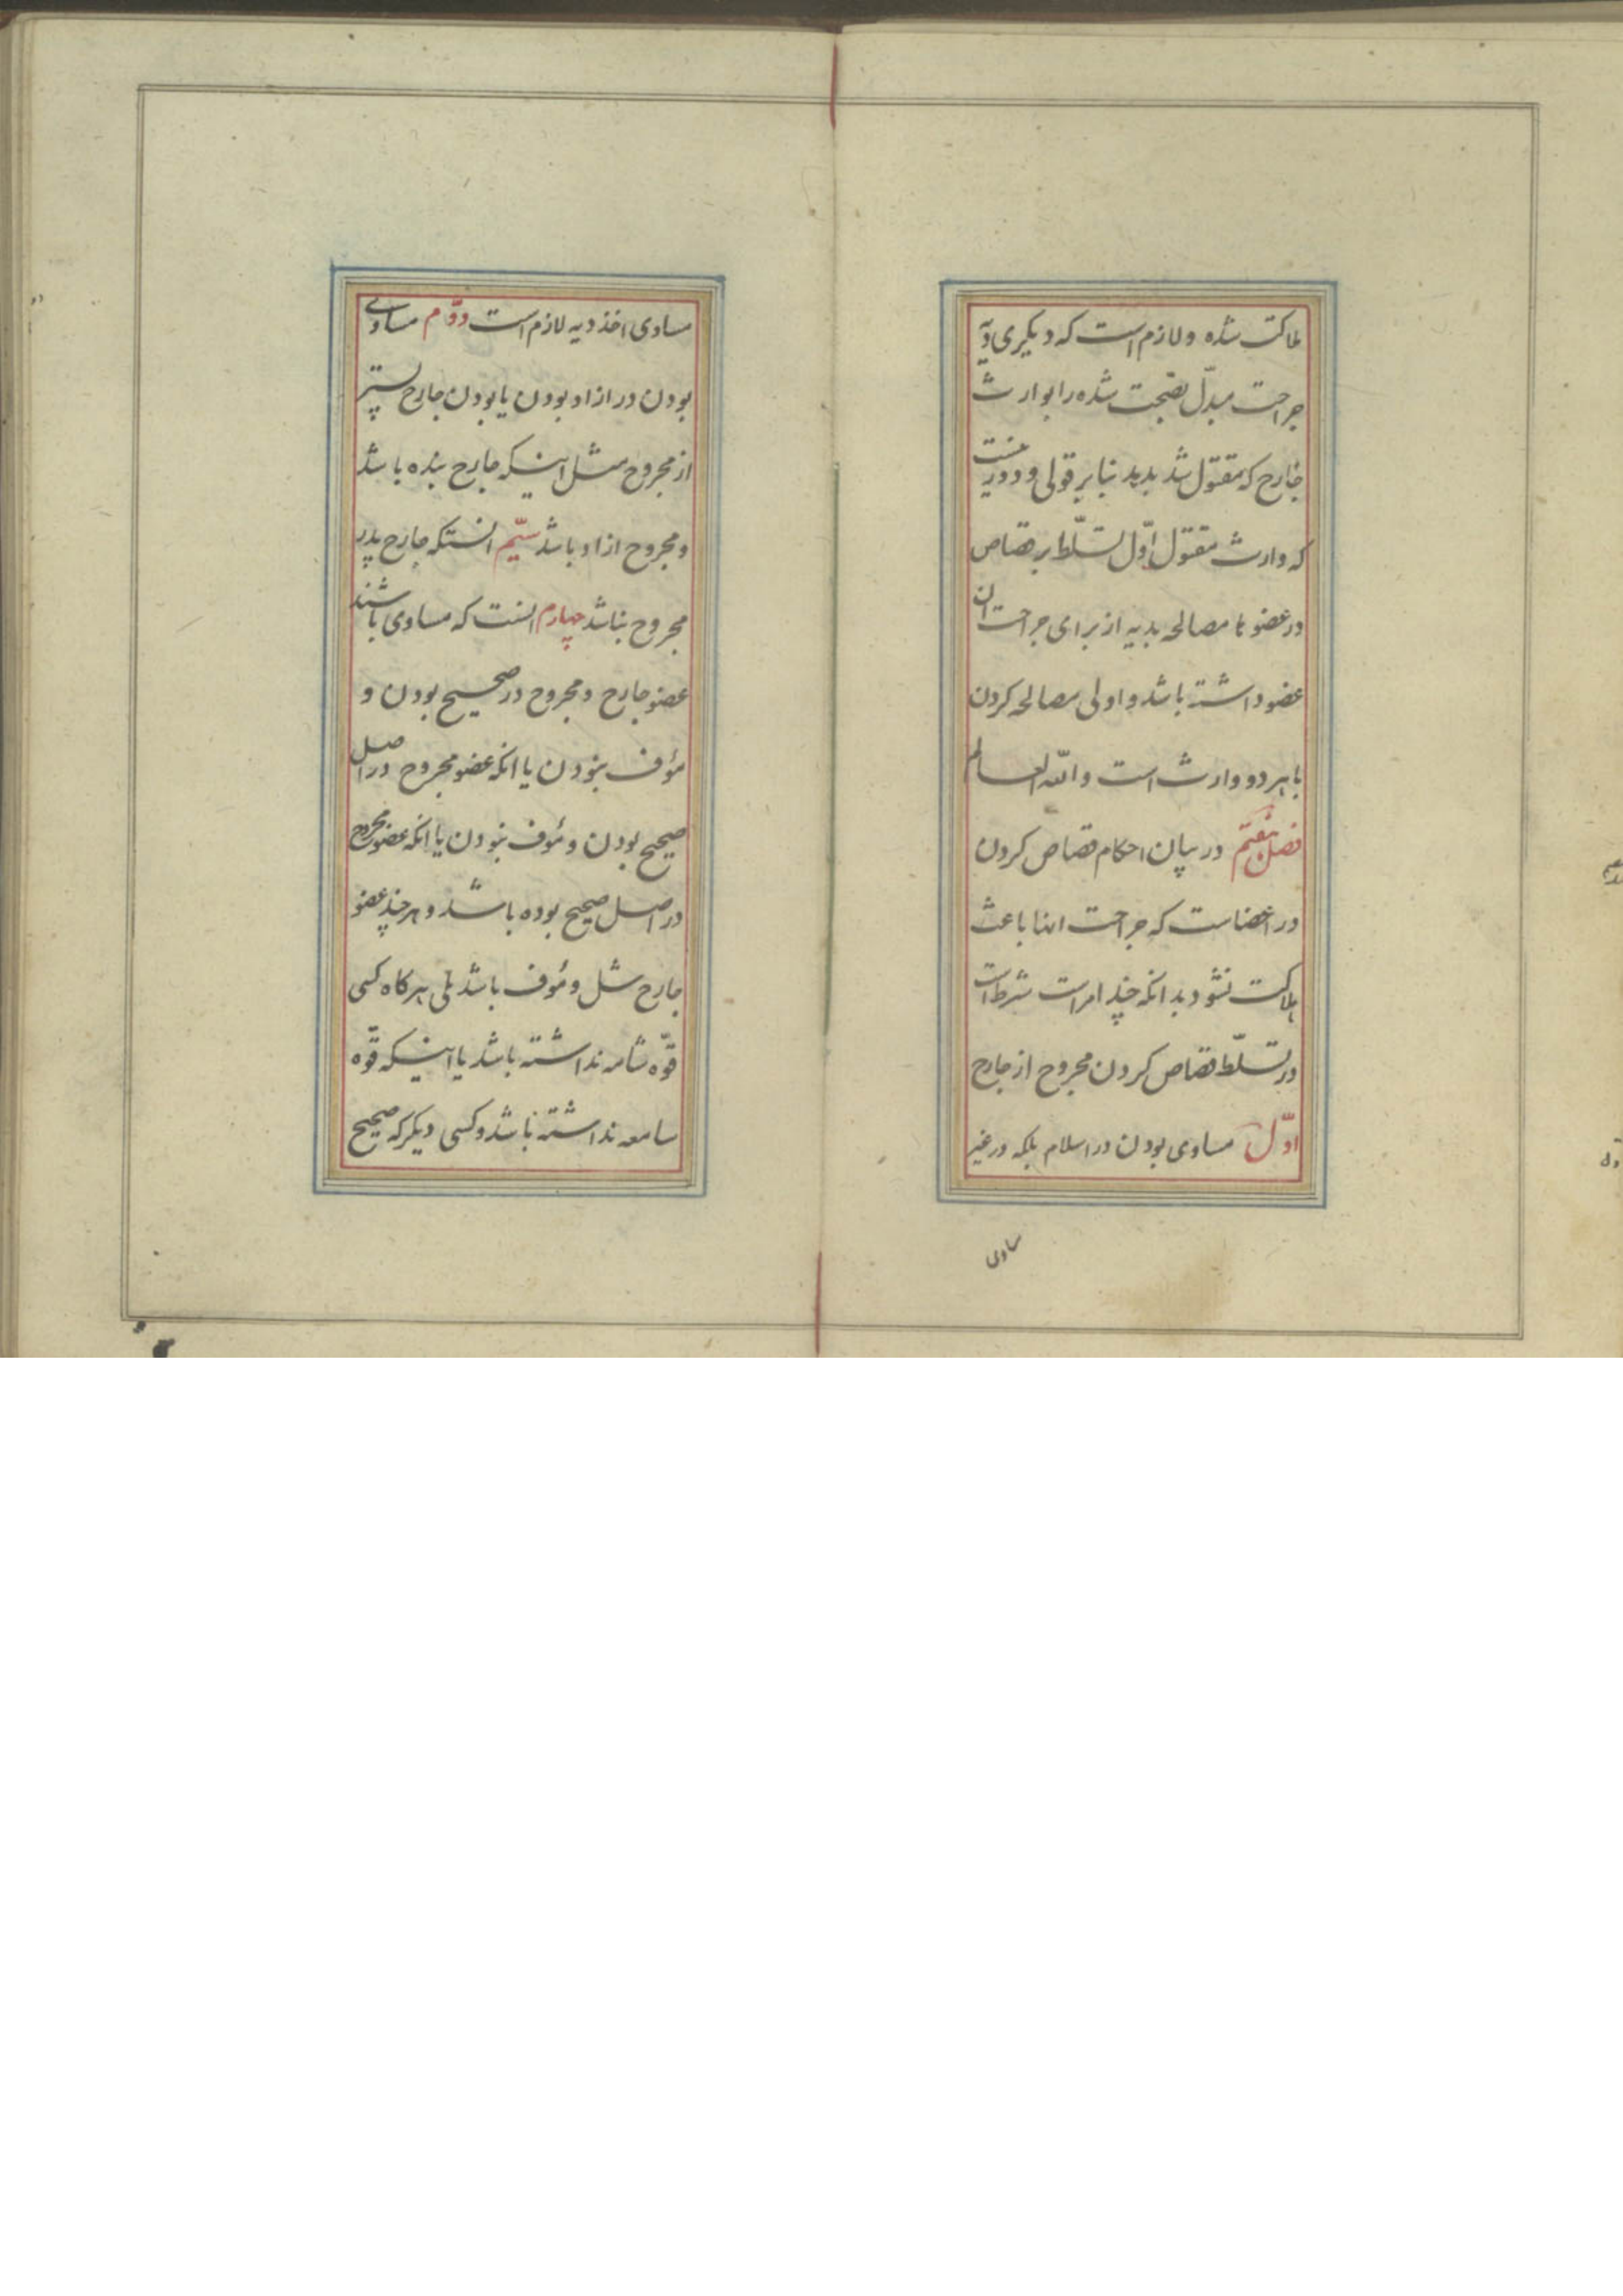 هلاکت شده و لازم است که دیکری دیه
جراحت مبدل بصحت شده را بوارث
جارح که مقتول شد بدهد بنابر قولی و دور نیست
که وارث مقتول اول تسلط بر قصاص
در عضو یا مصالحه بدیه از برای جراحت ان
عضو داشته باشد و اولی مصالحه کردن
با هر دو وارث است والله العالم
فصل هفتم در بیان احکام قصاص کردن
در اعضاست که جراحت انها باعث
هلاکت نشود بدانکه چند امر است شرط است
در تسلّط قصاص کردن مجروح از جارح
اوّل مساوی بودن در اسلام بلکه در غیر
مساوی
مساوی اخذ دیه لازم است دوّم مساوی
بودن در ازاد بودن یا بودن جارح پستتر
از مجروح مثل اینکه جارح بنده باشد
و مجروح ازاد باشد سیّم انستکه جارح پدر
مجروح نباشد چهارم انست که مساوی باشند
عضو جارح و مجروح در صحیح بودن و
مؤف نبودن یا انکه عضو مجروح در اصل
صحیح بودن و مؤف نبودن یا انکه عضو مجروح
در اصل صحیح بوده باشد و هر چند عضو
جارح شل و مؤف باشد بلی هرکاه کسی
قوّه شامه نداشته باشد یا اینکه قوّه
سامعه نداشته باشد و کسی دیکر که صحیح